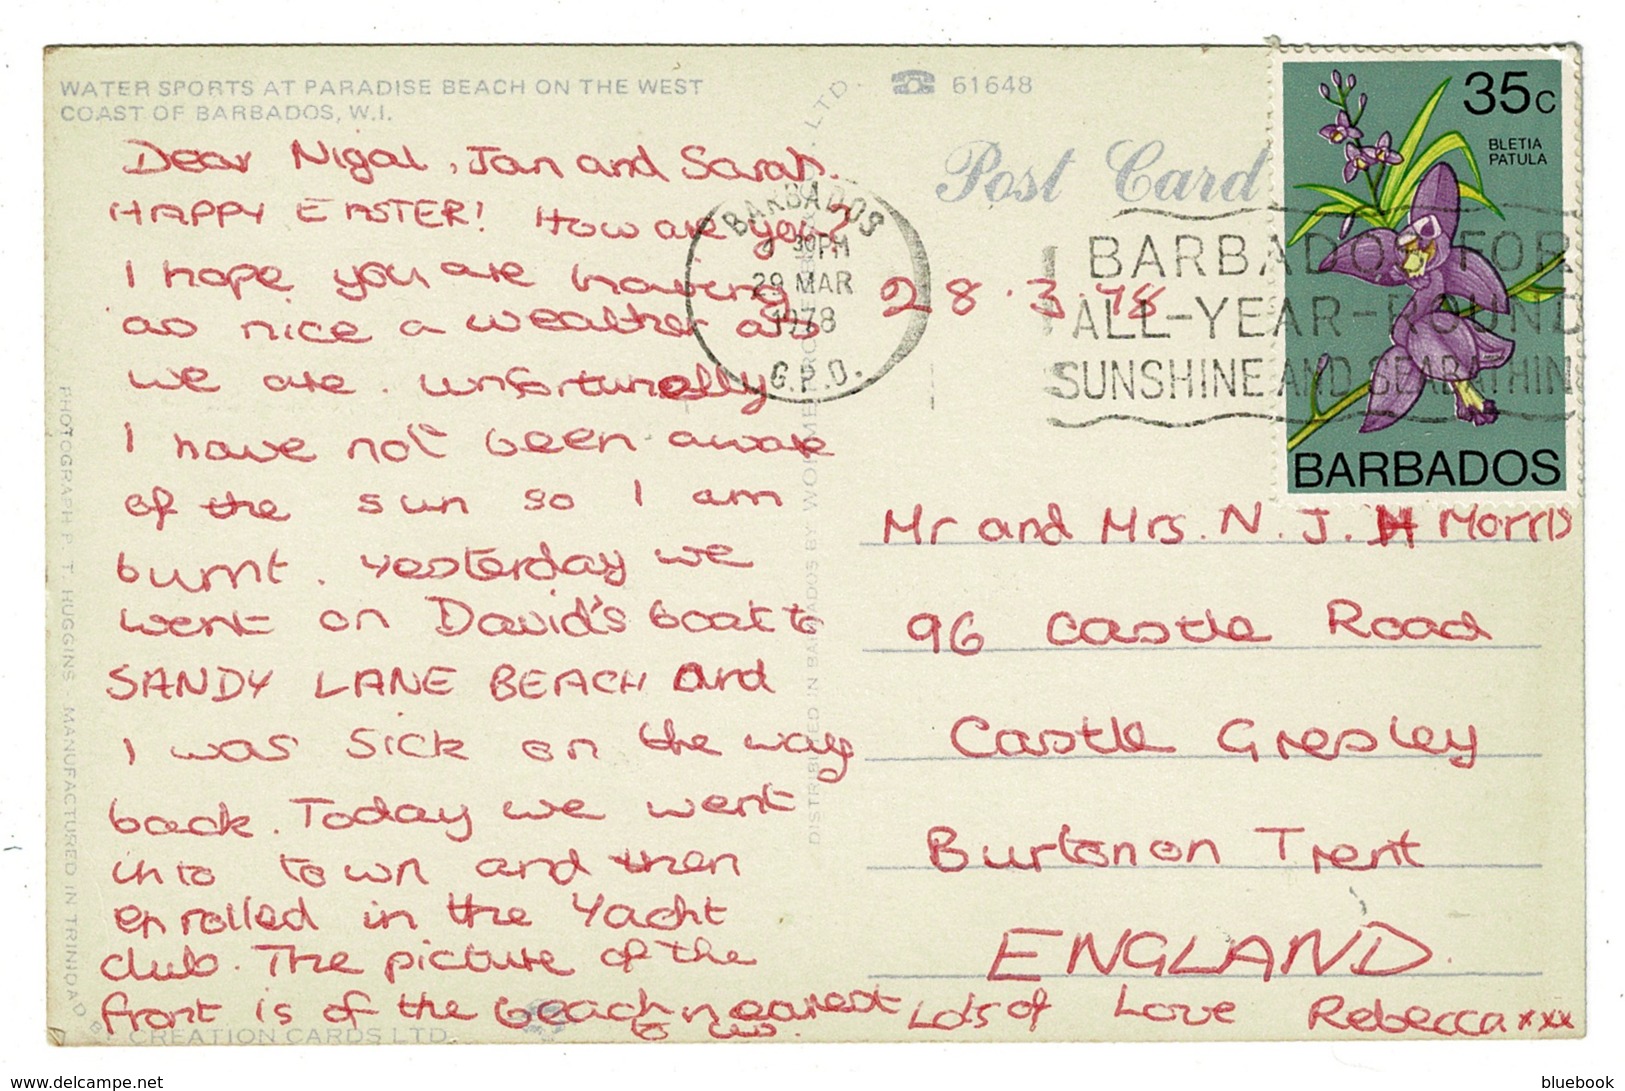 WATER SPORTS AT PARADISE BEACH ON THE WEST
COAST OF BARBADOS, W.I.
☎ 61648
Post Card
35c
BLETIA
PATULA
BARBADOS
BARBADOS
30PM
29 MAR
1978
G.P.O.
BARBADOS FOR
ALL-YEAR-ROUND
SUNSHINE AND SEABATHIN
Dear Nigal, Jan and Sarah.
HAPPY EASTER! How are you?
I hope you are having
as nice a weather as
we are. unfortunelly
I have not been aware
of the sun so I am
burnt. Yesterday we
went on David's boat to
SANDY LANE BEACH and
I was sick on the way
back. Today we went
into town and then
enrolled in the Yacht
club. The picture of the
front is of the beach nearest
to us.
28.3.78
Mr and Mrs. N. J. Morris
96 Castle Road
Castle Gresley
Burton on Trent
ENGLAND.
Lots of Love Rebecca xxx
PHOTOGRAPH P. T. HUGGINS - MANUFACTURED IN TRINIDAD BY CREATION CARDS LTD.
DISTRIBUTED IN BARBADOS BY LTD.
www.delcampe.net
bluebook